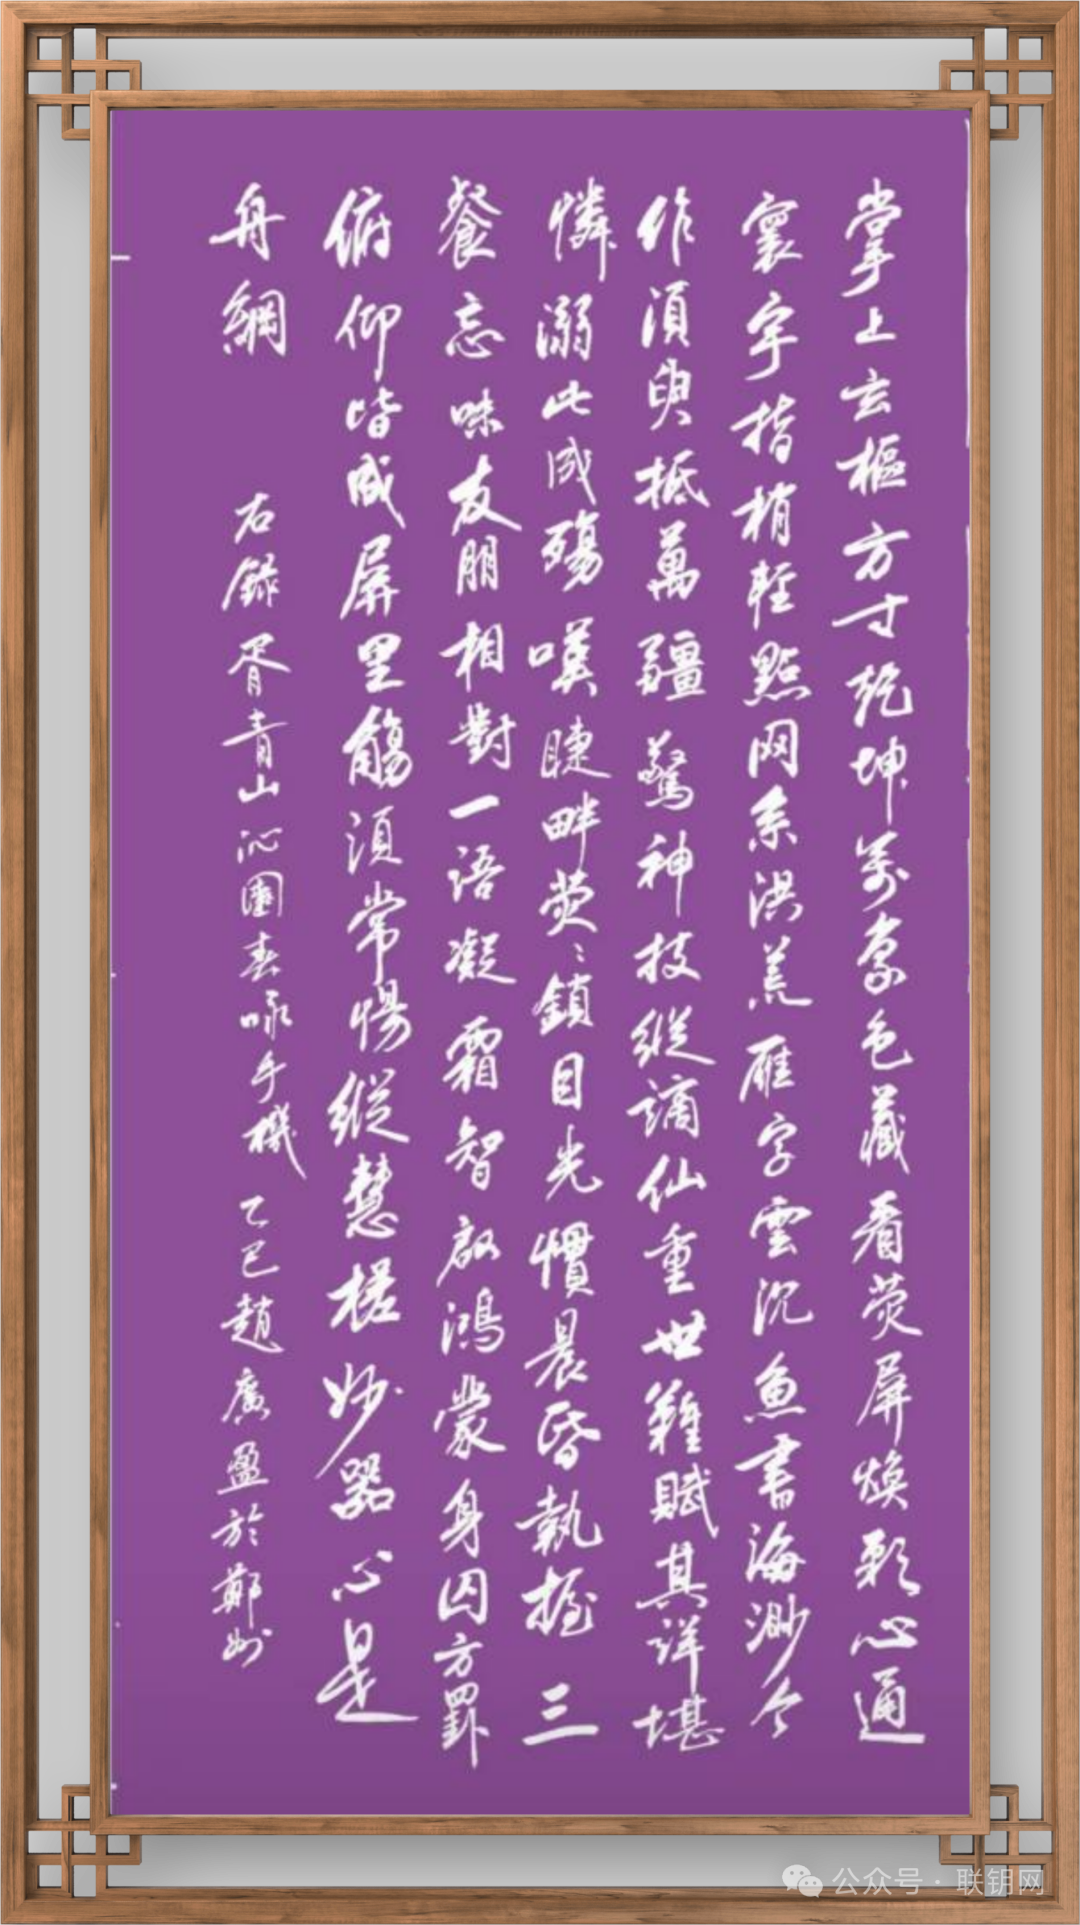 掌上玄樞方寸乾坤萬象色藏看荧屏焕彩心通
寰宇指梢輕點网系洪荒雁字雲沉魚書海渺今
作須臾抵萬疆驚神技縱謫仙重世難賦其詳堪
憐溺此成殤嘆睫畔荧〻鎖目光慣晨昏執握三
餐忘味友朋相對一語凝霜智啟鴻蒙身囚方罫
俯仰皆成屏里觴須常惕縱慧槎妙器心是
舟綱
右録胥青山沁園春咏手機 乙巳趙廣盈於鄭州
公众号·联钥网